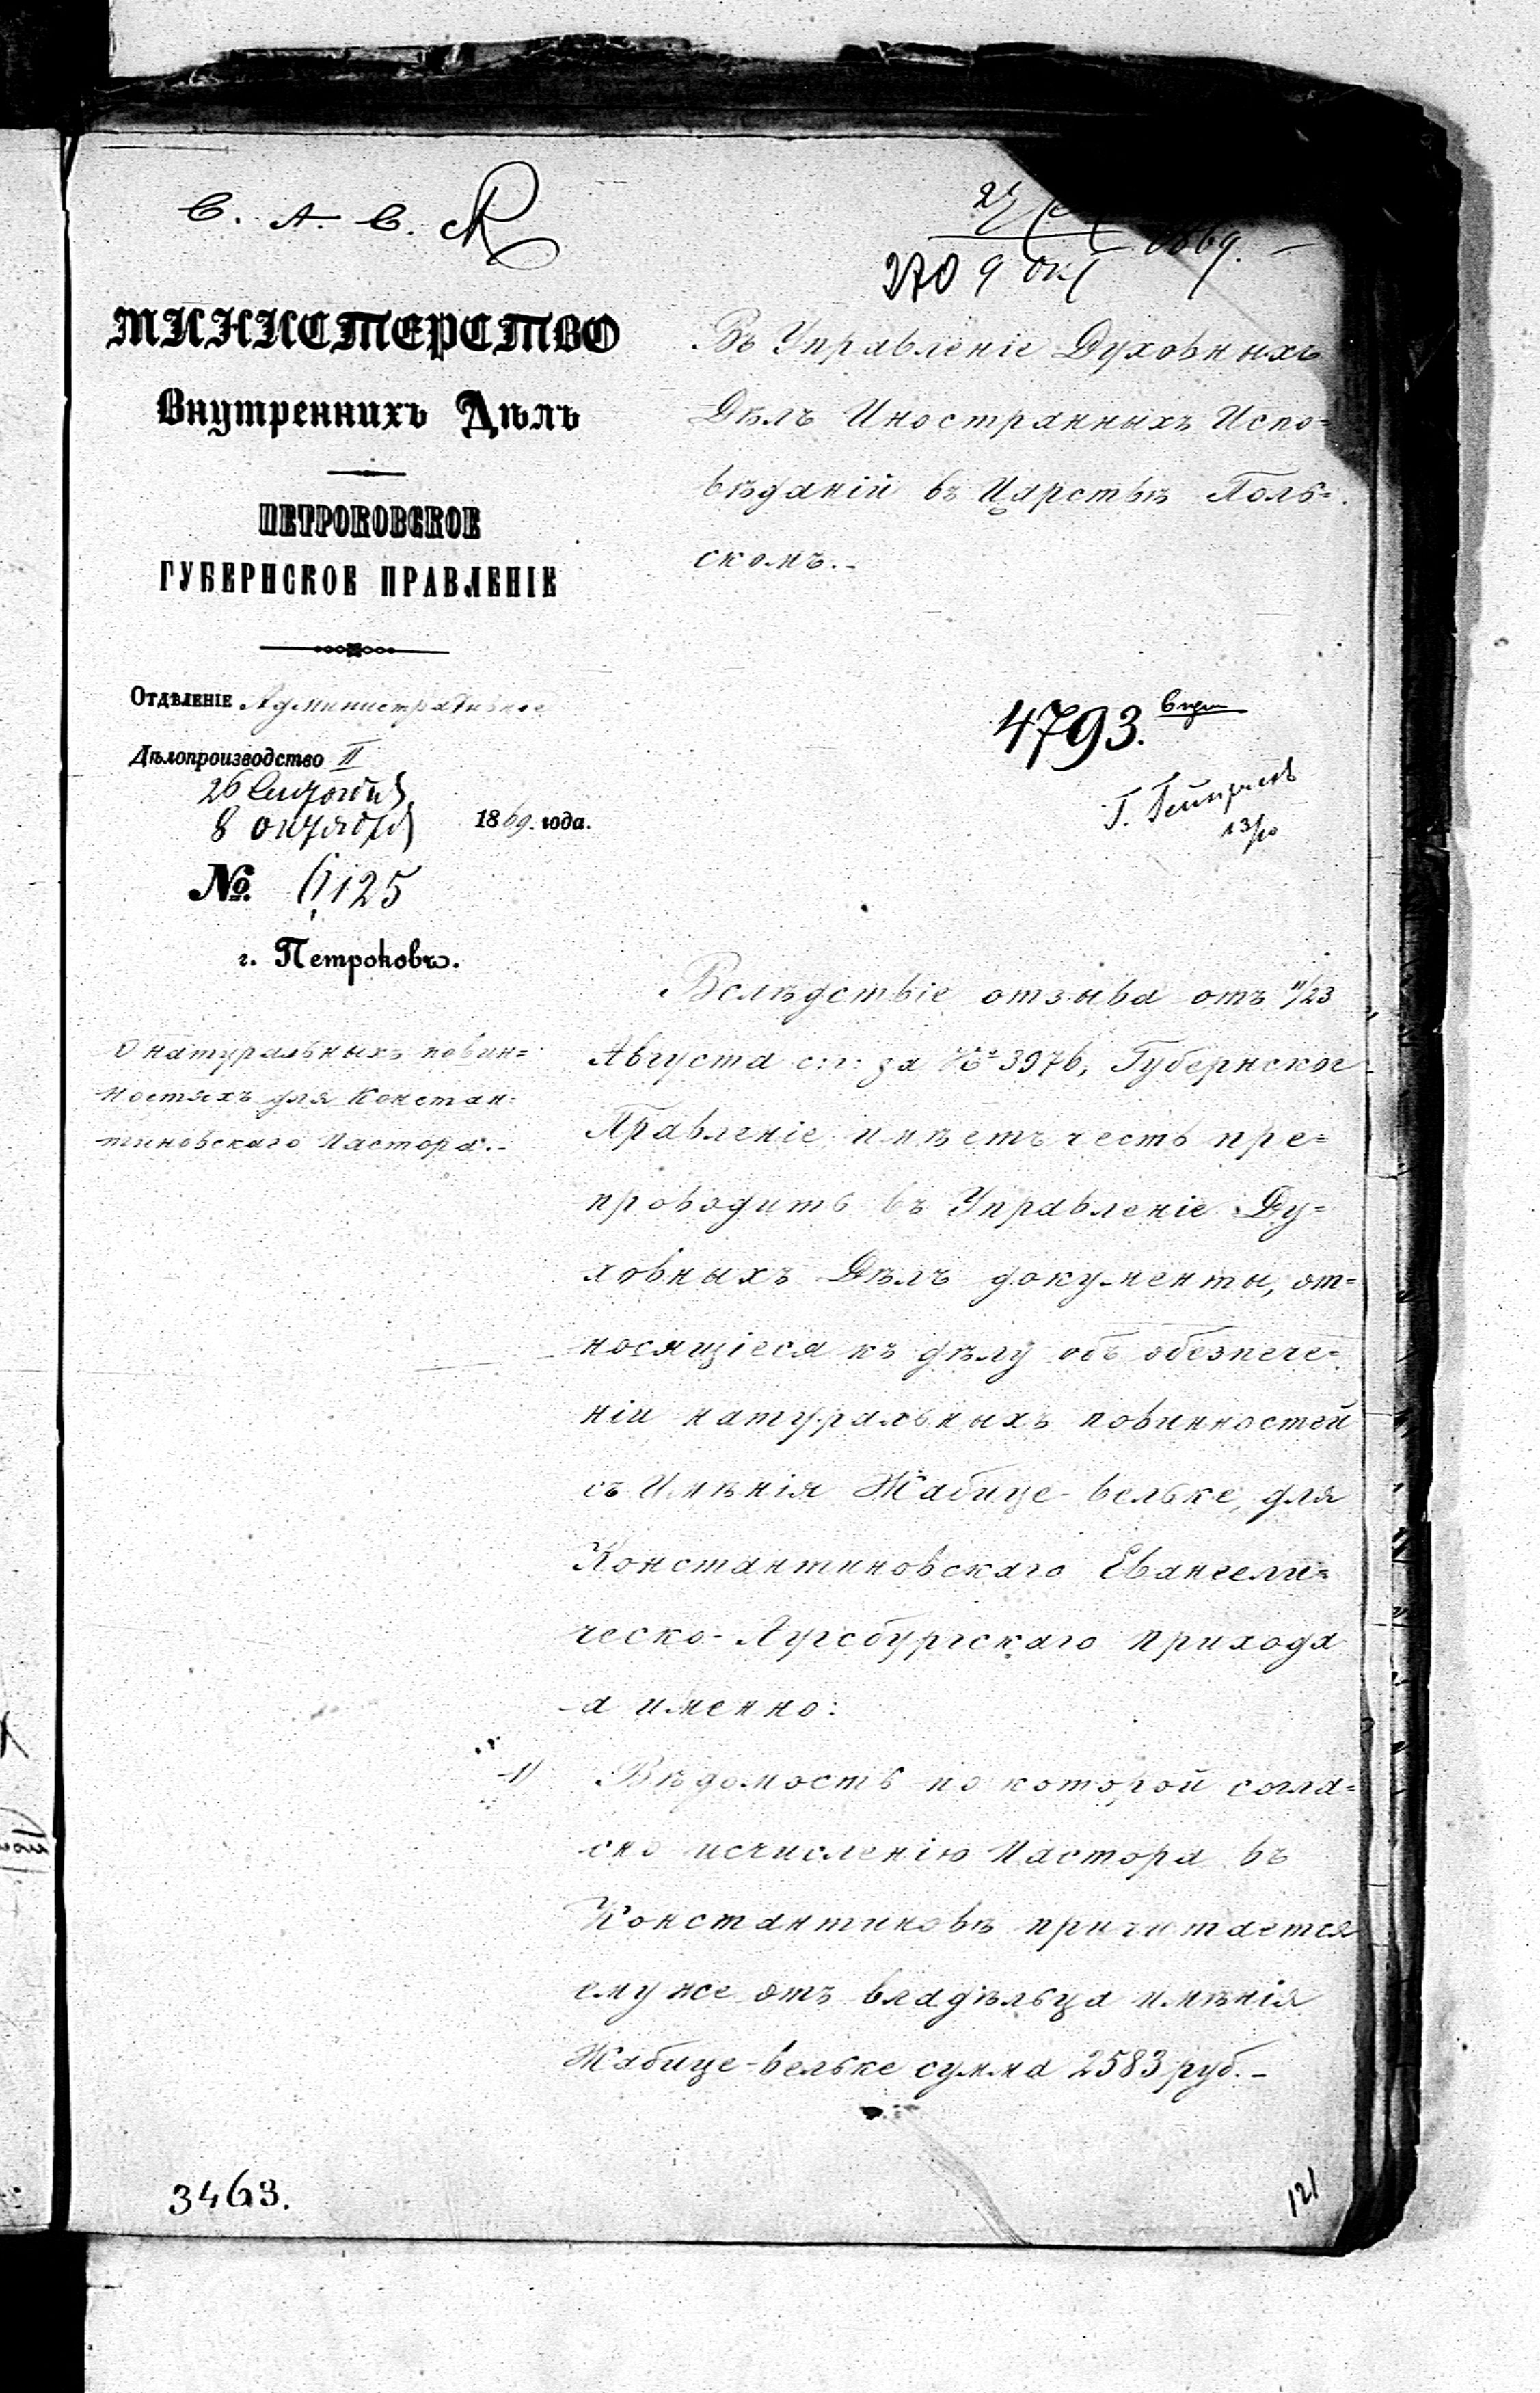 С. А. С.
1869.
270 9 Окт
МИНИСТЕРСТВО
Внутреннихъ Дѣлъ
ПЕТРОКОВСКОЕ
ГУБЕРНСКОЕ ПРАВЛЕНІЕ
Отдѣленіе Административное
Дѣлопроизводство II
26 Сентября
8 Октября 1869. года.
№ 6125
г. Петроковъ.
О натуральныхъ повин=
ностяхъ для Констан-
тиновскаго Пастора.-
Въ Управленіе Духовныхъ
Дѣлъ Иностранныхъ Испо=
вѣданій въ Царствѣ Поль=
скомъ.-
4793.
Г.
13/10
Вслѣдствіе отзыва отъ 11/23
Августа с: г: за № 3976, Губернское
Правленіе имѣетъ честь пре=
проводить въ Управленіе Ду=
ховныхъ Дѣлъ документы, от=
носящіеся къ дѣлу объ обезпече=
ніи натуральныхъ повинностей
съ Имѣнія Жабице-вельке, для
Константиновскаго Евангели=
ческо-Аугсбургскаго прихода
а именно:
1/ Вѣдомость по которой согла=
сно исчисленію Пастора въ
Константиновѣ причитается
ему же отъ владѣльца имѣнія
Жабице-вельке сумма 2583 руб.-
3463.
121